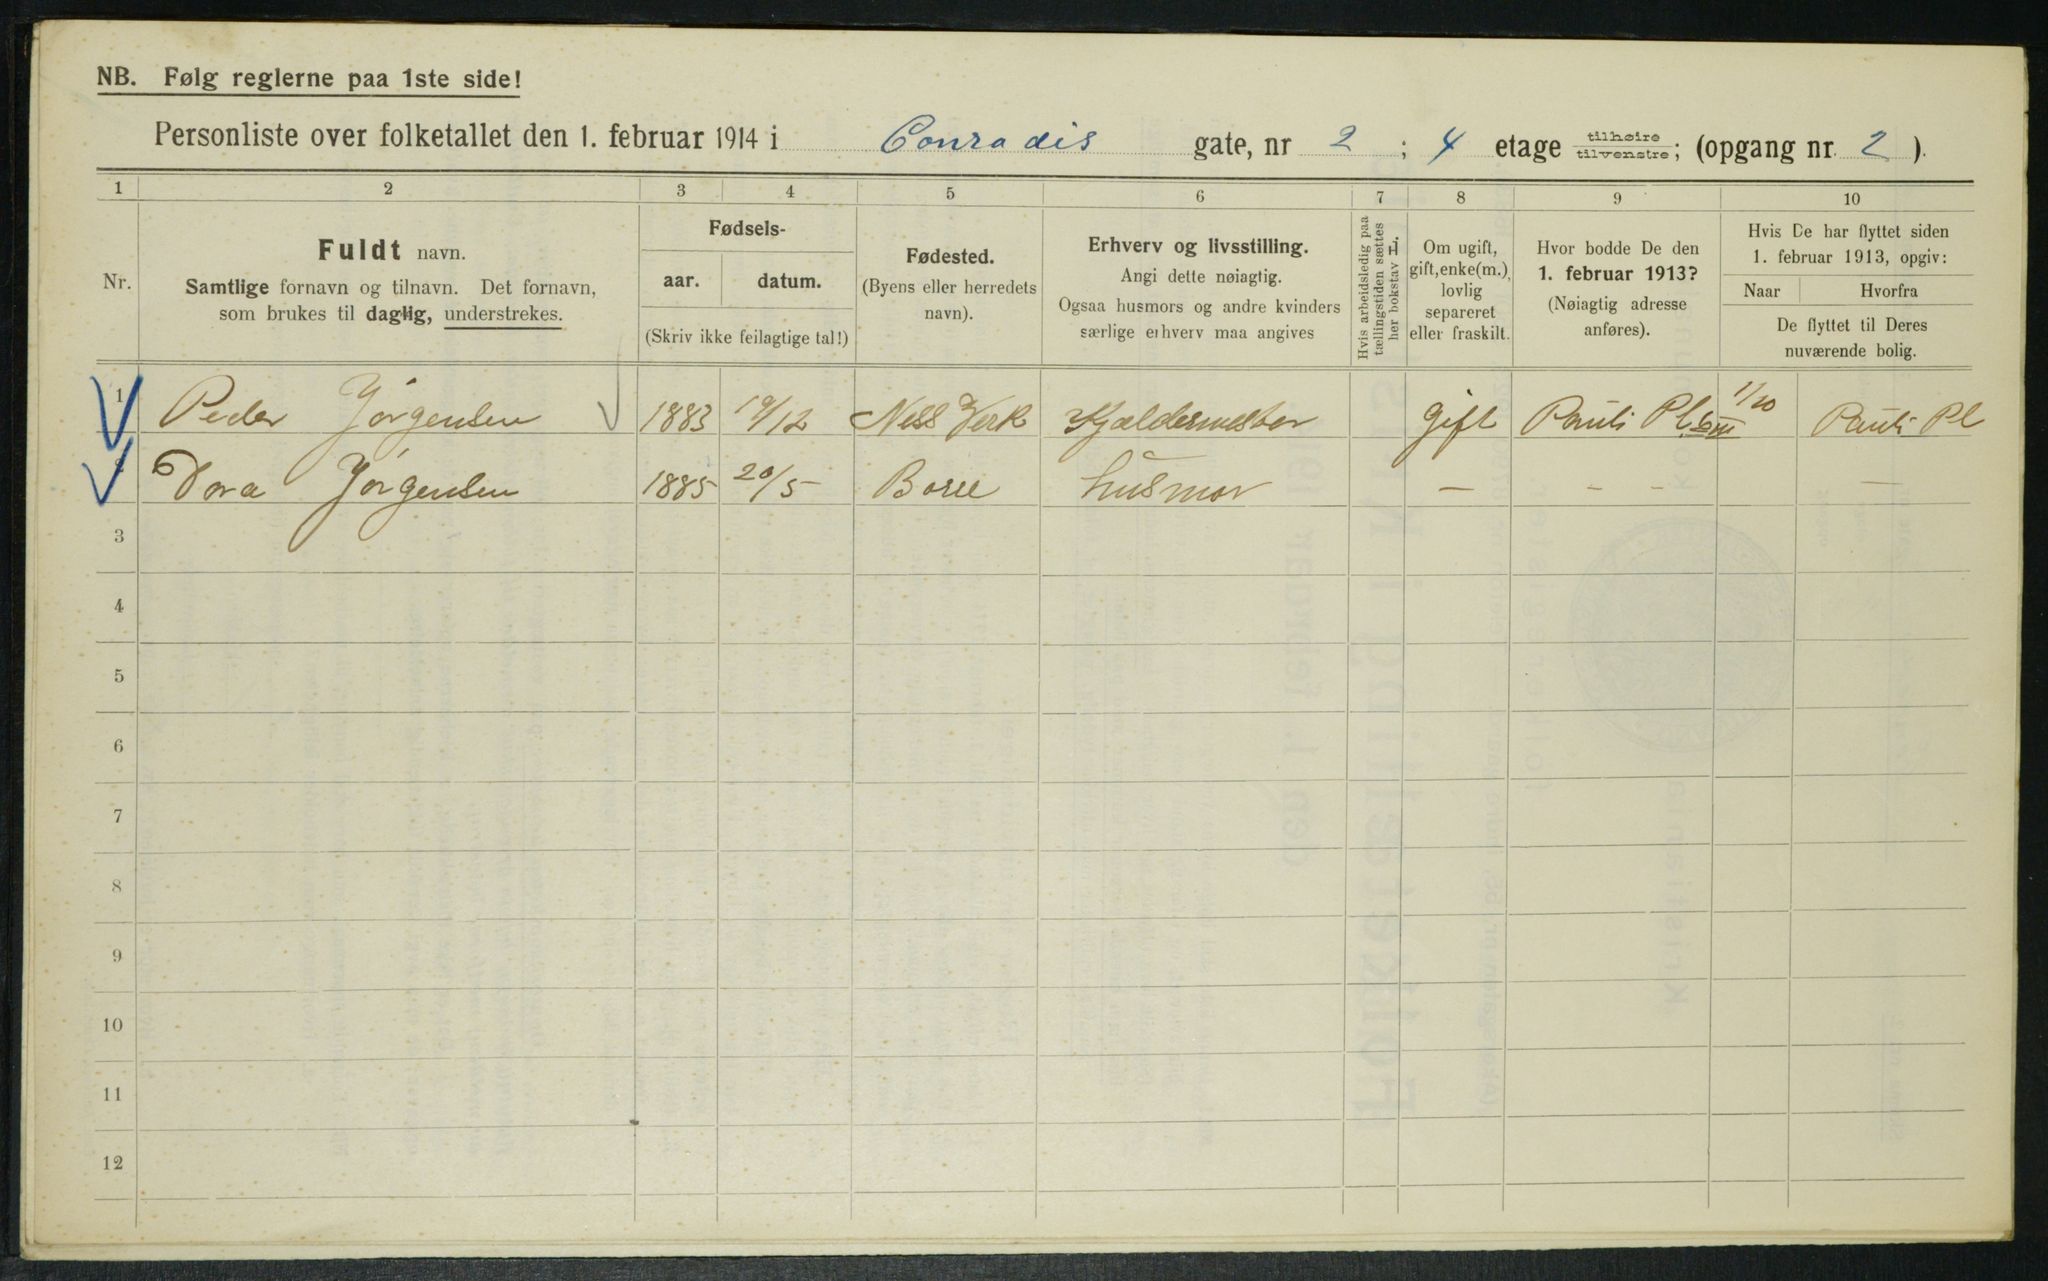 NB. Følg reglerne paa 1ste side!
Personliste over folketallet den 1. februar 1914 i Conradis gate, nr 2; 4 etage tilhøire tilvenstre; (opgang nr. 2).
1 2 3 4 5 6 7 8 9 10
Nr.
Fuldt navn.
Samtlige fornavn og tilnavn. Det fornavn,
som brukes til daglig, understrekes.
Fødsels-
aar. datum.
(Skriv ikke feilagtige tal!)
Fødested.
(Byens eller herredets
navn).
Erhverv og livsstilling.
Angi dette nøiagtig.
Ogsaa husmors og andre kvinders
særlige erhverv maa angives
Hvis arbeidsledig paa
tællingstiden sættes
her bokstav H.
Om ugift,
gift, enke(m.),
lovlig
separeret
eller fraskilt.
Hvor bodde De den
1. februar 1913?
(Nøiagtig adresse
anføres).
Hvis De har flyttet siden
1. februar 1913, opgiv:
Naar Hvorfra
De flyttet til Deres
nuværende bolig.
1 Peder Jørgensen 1883 19/12 Ness Verk Kjældermester Gift Pauls Pl. 1/10 Pauls Pl
2 Dora Jørgensen 1885 20/5 husmor — — — —
3
4
5
6
7
8
9
10
11
12